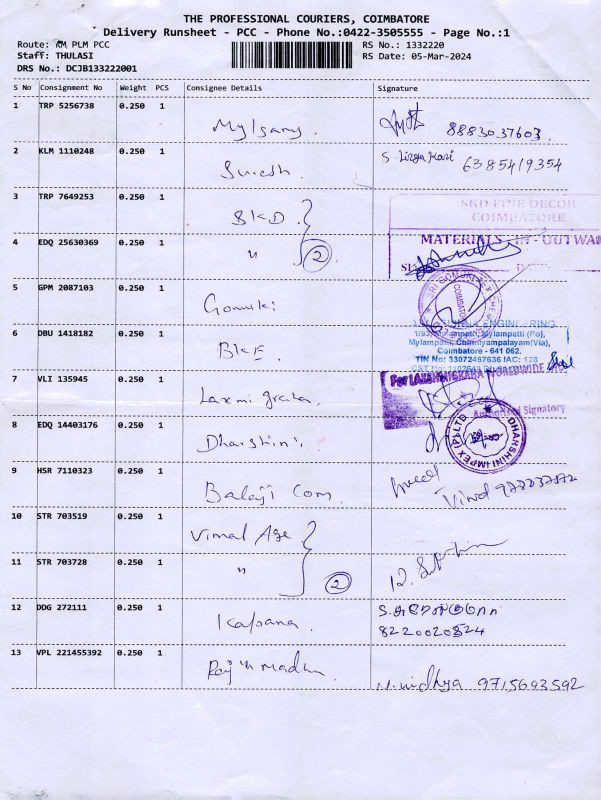 THE PROFESSIONAL COURIERS, COIMBATORE
Delivery Runsheet - PCC - Phone No.:0422-3505555 - Page No.:1
Route: KM PLM PCC
RS No.: 1332220
Staff: THULASI
RS Date: 05-Mar-2024
DRS No.: DCJB133222001
S No Consignment No Weight PCS Consignee Details Signature
1 TRP 5256738 0.250 1
88830.37603.
2 KLM 1110248 0.250 1 Suresh. 6385419354
3 TRP 7649253 0.250 1 SKD
SKD FINE DECOR
COIMBATORE
4 EDQ 25630369 0.250 1 " 2
MATERIALS - IN - OUTWA
5 GPM 2087103 0.250 1 Gomuki
ENGINEERING
6 DBU 1418182 0.250 1 BKE
Mylampatti (Po),
Mylampatti, Chinniyampalayam(Via),
Coimbatore - 641 062.
TIN No: 33072467636 IAC: 128
7 VLI 135945 0.250 1 Laxmi graha.
Authorised Signatory
8 EDQ 14403176 0.250 1 Dharshini
DHARSHINI IMPEX (P) LTD
9 HSR 7110323 0.250 1 Balaji Com.
10 STR 703519 0.250 1 Vimal Age
11 STR 703728 0.250 1 " 2
12 DDG 272111 0.250 1 Kalpana.
8220020524
13 VPL 221455392 0.250 1
M. vidhya 9715693592